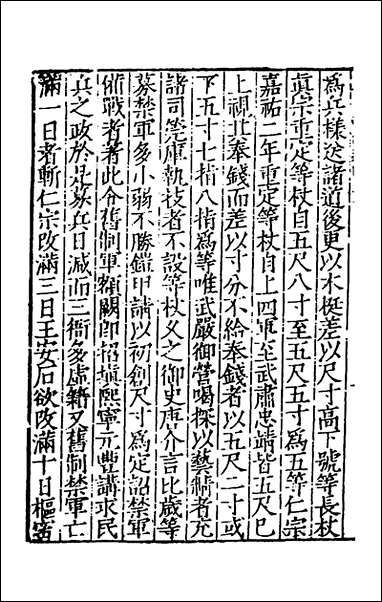 爲兵樣送諸道後更以木梃差以尺寸高下號等長杖
眞宗重定等杖自五尺八寸至五尺五寸爲五等仁宗
嘉祐二年重定等杖自上四軍至武肅忠靖皆五尺已
上視其奉錢而差以寸分不給奉錢者以五尺二寸或
下五寸七指八指爲等唯武嚴御營喝探以藝精者充
諸司筦庫執技者不設等杖久之御史唐介言比歲等
募禁軍多小弱不勝鎧甲請以初創尺寸爲定詔禁軍
備戰者著此令舊制軍額闕卽招塡熙寧元豐講求民
兵之政於是募兵日减而三衙多虛籍又舊制禁軍亡
滿一日者斬仁宗攺滿三日王安石欲攺滿十日樞宻